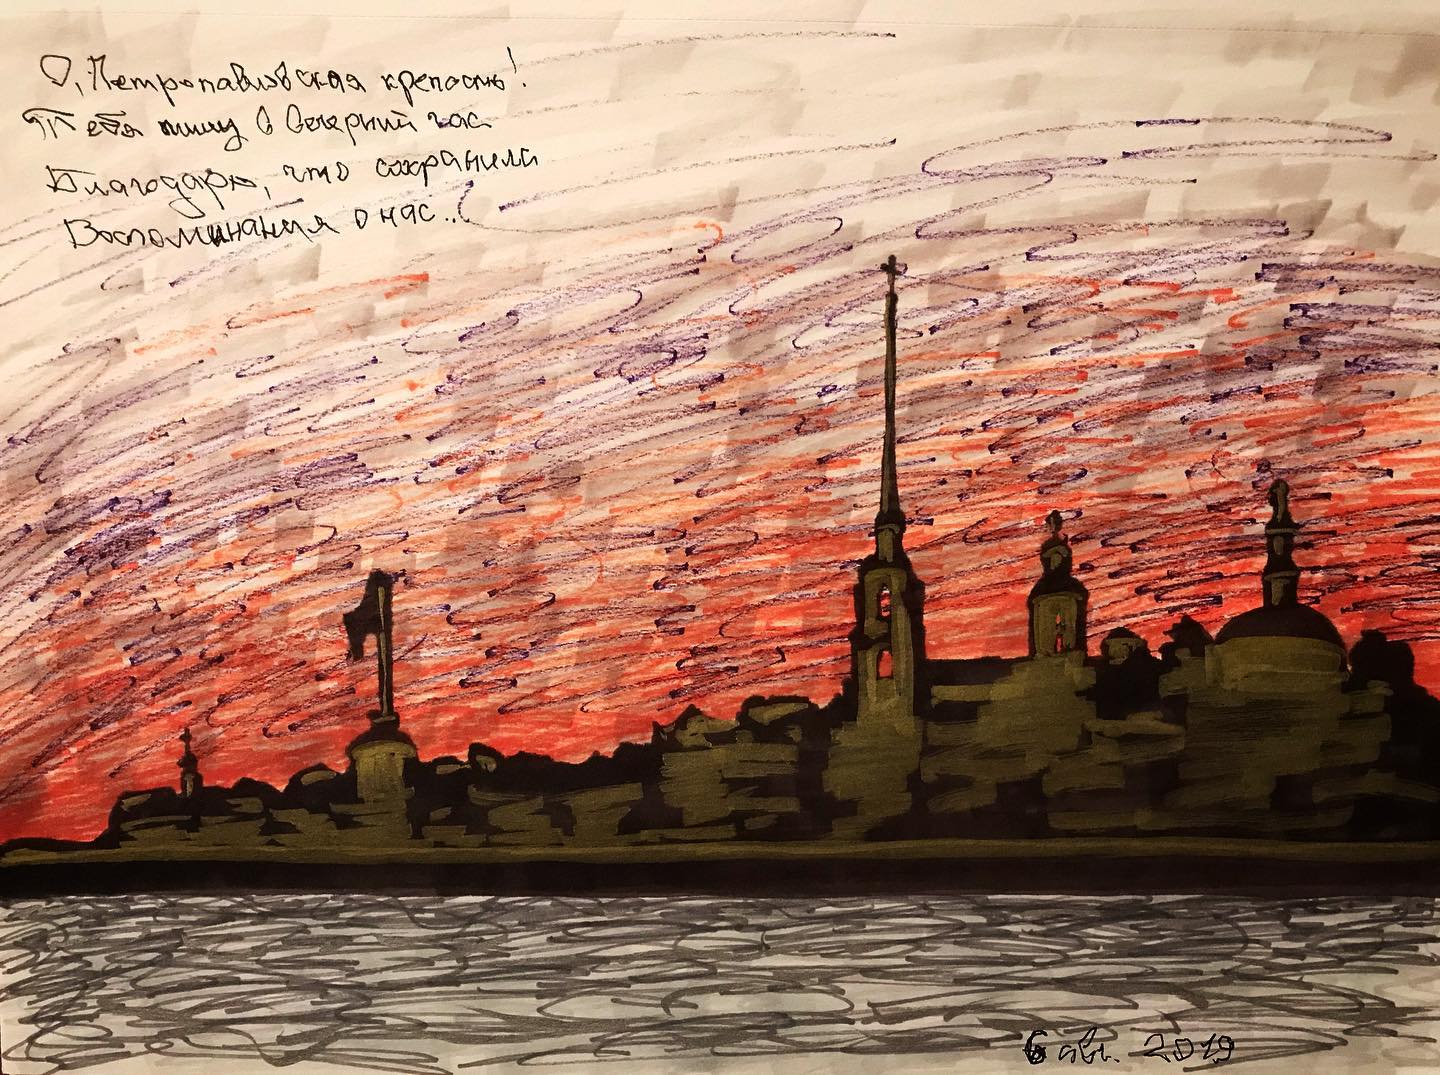 О, Петропавловская крепость!
Тебя пишу в вечерний час
Благодарю, что сохранила
Воспоминания о нас...
6 авг. 2019